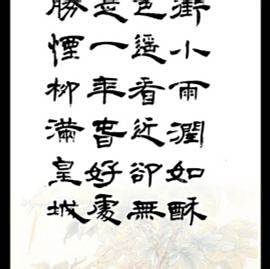 街小雨潤如酥
色遙看近卻無
是一年春好處
勝煙柳滿皇城